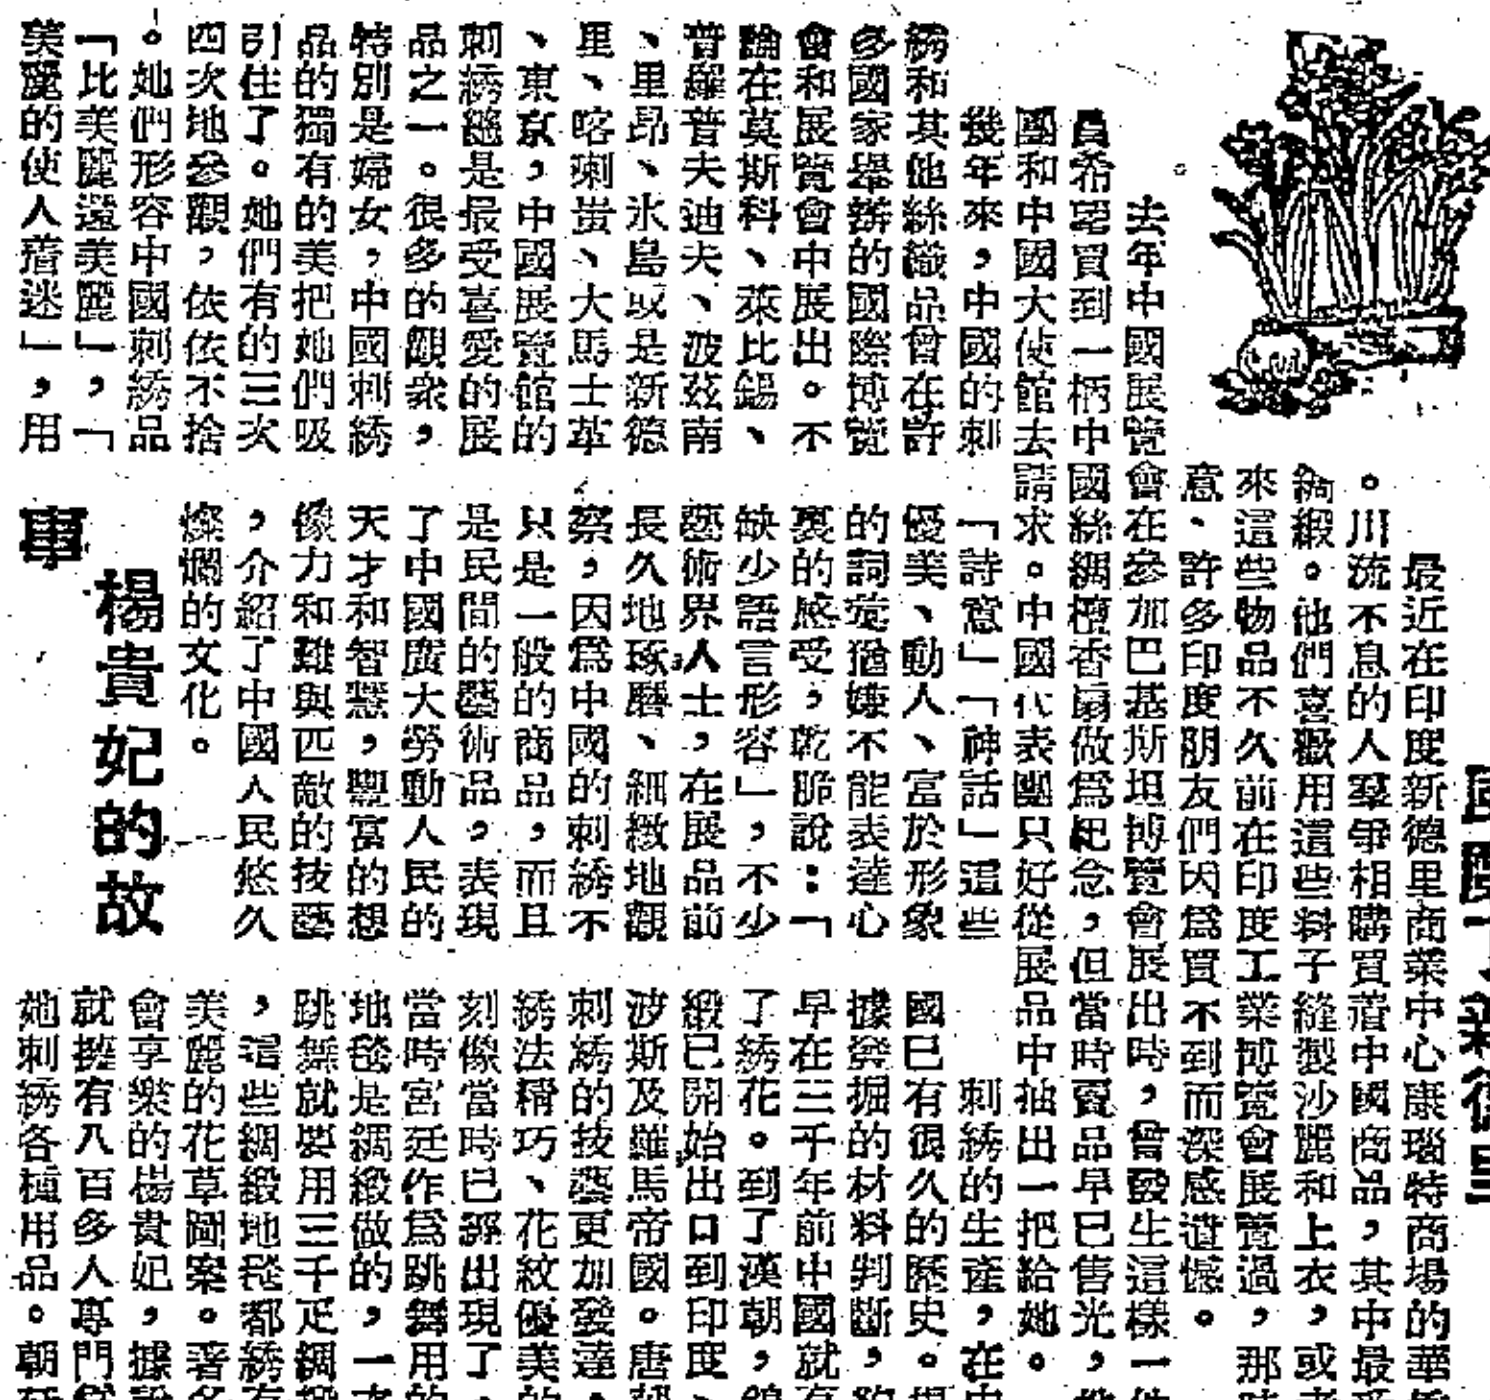 最近在印度新德里商業中心康瑙特商場的華
。川流不息的人羣爭相購買着中國商品，其中最
綢緞。他們喜歡用這些料子縫製沙麗和上衣，或
來這些物品不久前在印度工業博覽會展覽過，那
意、許多印度朋友們因爲買不到而深感遺憾。
去年中國展覽會在參加巴基斯坦博覽會展出時，曾發生這樣一
員希望買到一柄中國絲綢檀香扇做爲紀念，但當時賣品早已售光，
團和中國大使館去請求。中國代表團只好從展品中抽出一把給她。
幾年來，中國的刺
綉和其他絲織品曾在許
多國家舉辦的國際博覽
會和展覽會中展出。不
論在莫斯科、萊比錫、
普羅普夫迪夫、波茲南
、里昂、氷島或是新德
里、喀喇蚩、大馬士革
、東京，中國展覽館的
刺綉總是最受喜愛的展
品之一。很多的觀衆，
特別是婦女，中國刺綉
品的獨有的美把她們吸
引住了。她們有的三次
四次地參觀，依依不捨
。她們形容中國刺綉品
「比美麗還美麗」，「
美麗的使人着迷」，用
「詩意」「神話」這些
優美、動人、富於形象
的詞藻猶嫌不能表達心
裏的感受，乾脆說：「
缺少語言形容」，不少
藝術界人士，在展品前
長久地琢磨、細緻地觀
察，因爲中國的刺綉不
只是一般的商品，而且
是民間的藝術品，表現
了中國廣大勞動人民的
天才和智慧，豐富的想
像力和難與匹敵的技藝
，介紹了中國人民悠久
燦爛的文化。
楊貴妃的故
事
刺綉的生產，在
國已有很久的歷史。
據發掘的材料判斷，
早在三千年前中國就
了綉花。到了漢朝，
緞已開始出口到印度、
波斯及羅馬帝國。唐
刺綉的技藝更加發達，
綉法精巧、花紋優美
刻像當時已經出現了
當時宮廷作爲跳舞用
地毯是綢緞做的，一
跳舞就要用三千疋綢
，這些綢緞地毯都綉
美麗的花草圖案。著
會享樂的楊貴妃，據
就擁有八百多人專門
她刺綉各種用品。朝